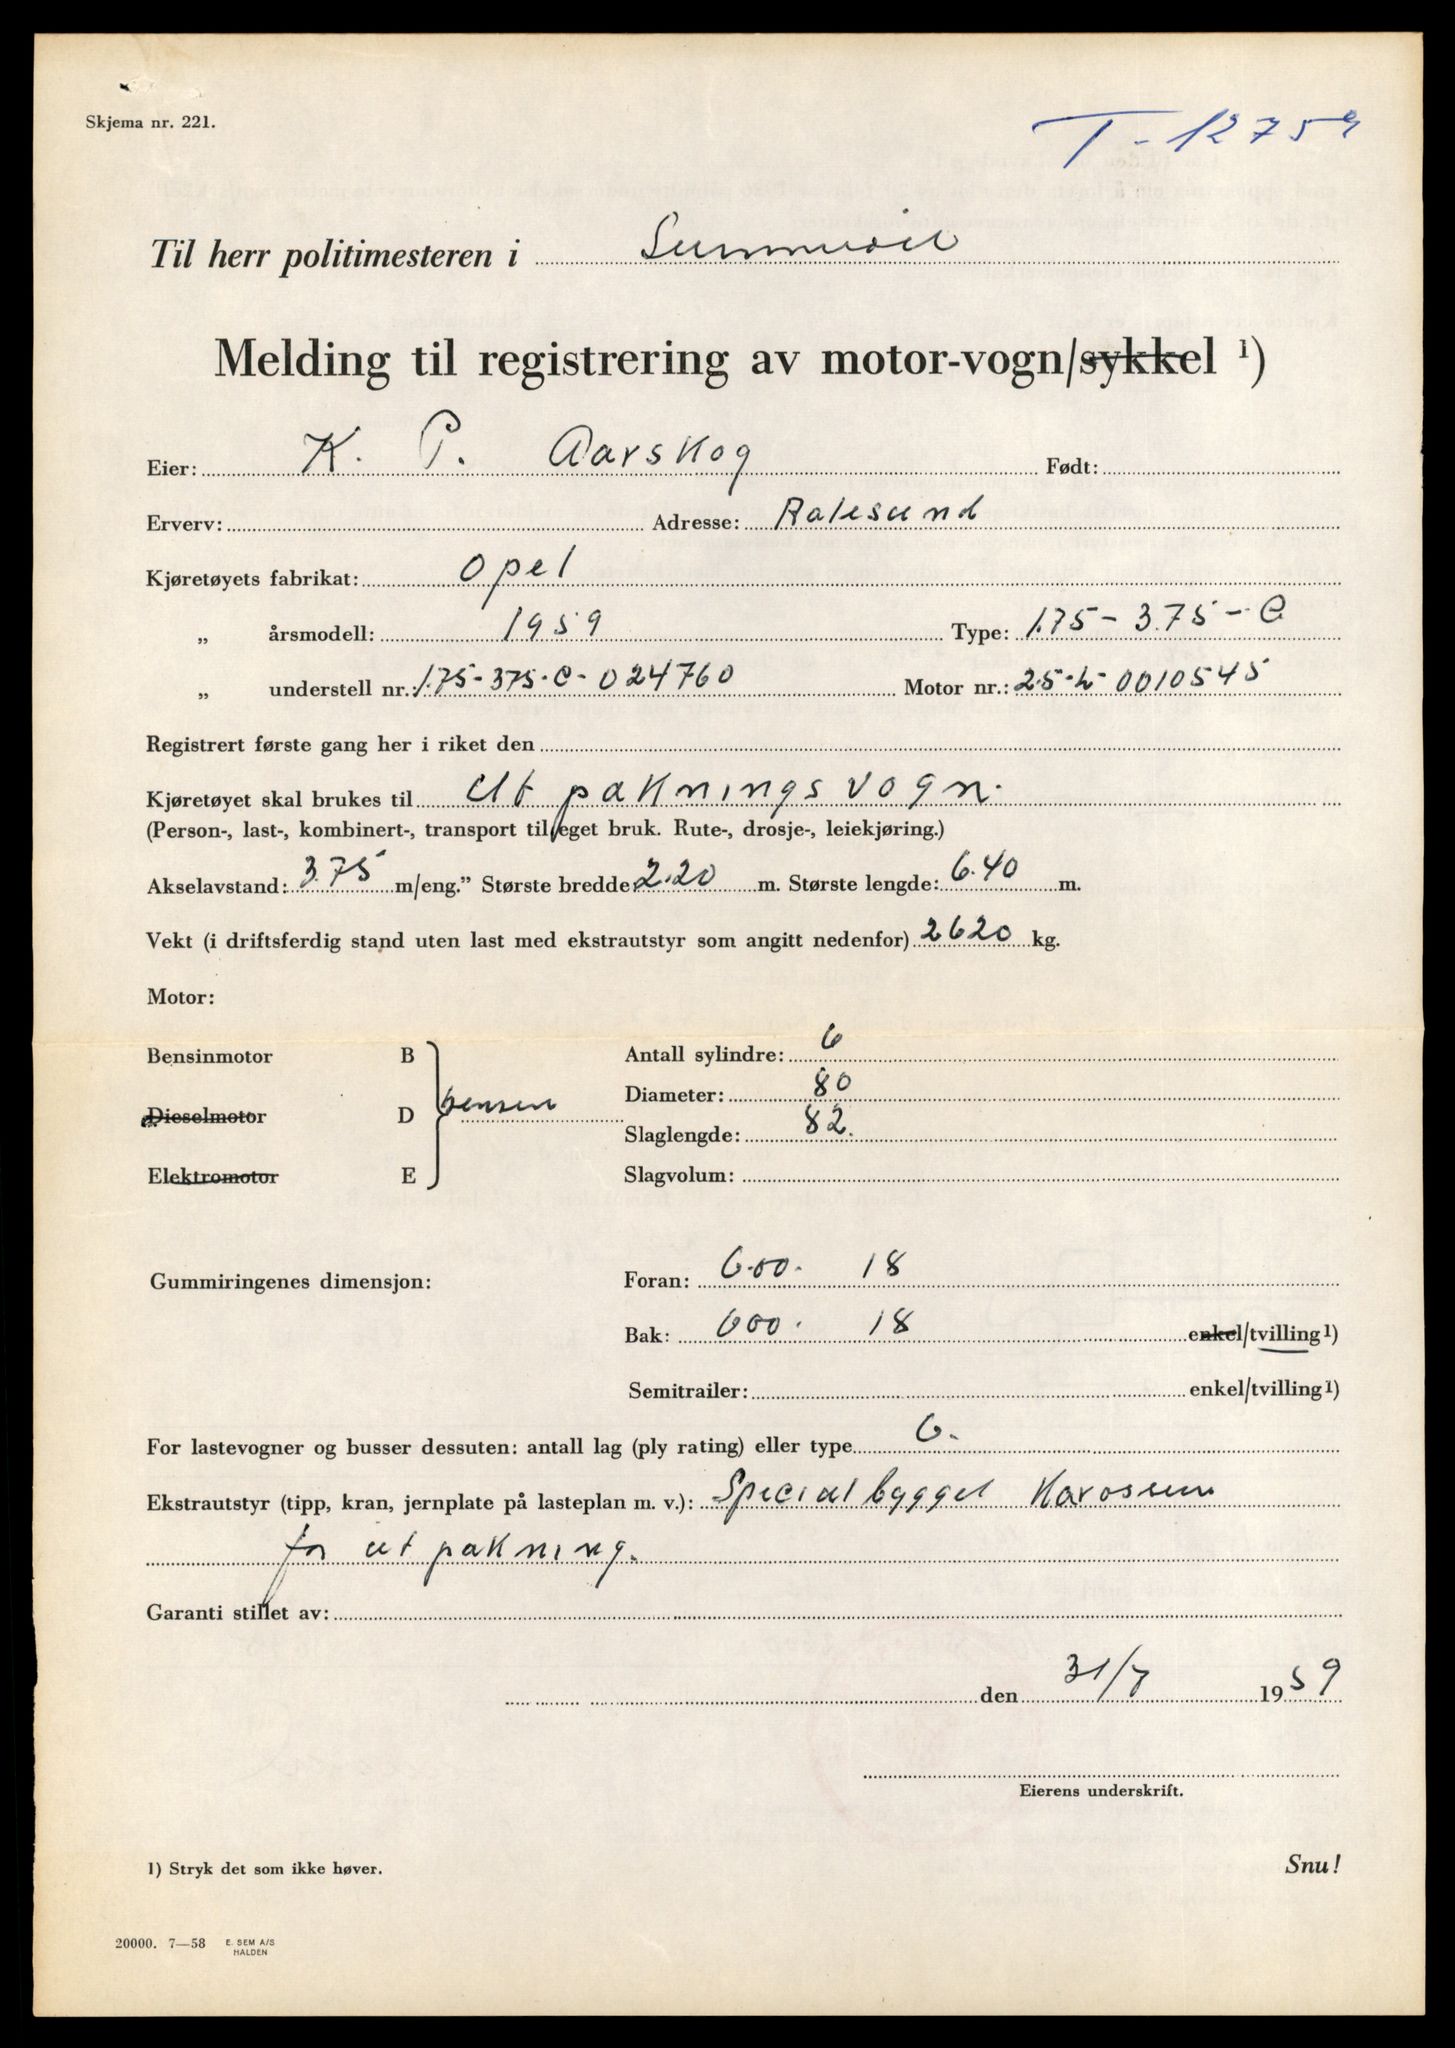 Skjema nr. 221.
T-12759
Til herr politimesteren i Sunnmøre
Melding til registrering av motor-vogn/sykkel ¹)
Eier: K. P. Aarskog Født:
Erverv: Adresse: Aalesund
Kjøretøyets fabrikat: Opel
„ årsmodell: 1959 Type: 1.75-3.75-C
„ understell nr. 1.75-375-C-024760 Motor nr.: 2.5-L-0010545
Registrert første gang her i riket den
Kjøretøyet skal brukes til Utpakningsvogn.
(Person-, last-, kombinert-, transport til eget bruk. Rute-, drosje-, leiekjøring.)
Akselavstand: 3.75 m/eng.” Største bredde 2.20 m. Største lengde: 6.40 m.
Vekt (i driftsferdig stand uten last med ekstrautstyr som angitt nedenfor) 2620 kg.
Motor:
Bensinmotor B Antall sylindre: 6
Diameter: 80
Dieselmotor D bensin
Slaglengde: 82.
Elektromotor E Slagvolum:
Gummiringenes dimensjon: Foran: 6.00. 18
Bak: 600. 18 enkel/tvilling¹)
Semitrailer: enkel/tvilling¹)
For lastevogner og busser dessuten: antall lag (ply rating) eller type 6.
Ekstrautstyr (tipp, kran, jernplate på lasteplan m. v.): Specialbygget
for utpakning.
Garanti stillet av:
den 31/7 1959
Eierens underskrift.
1) Stryk det som ikke høver.
Snu!
20000. 7—58 E. SEM A/S
HALDEN